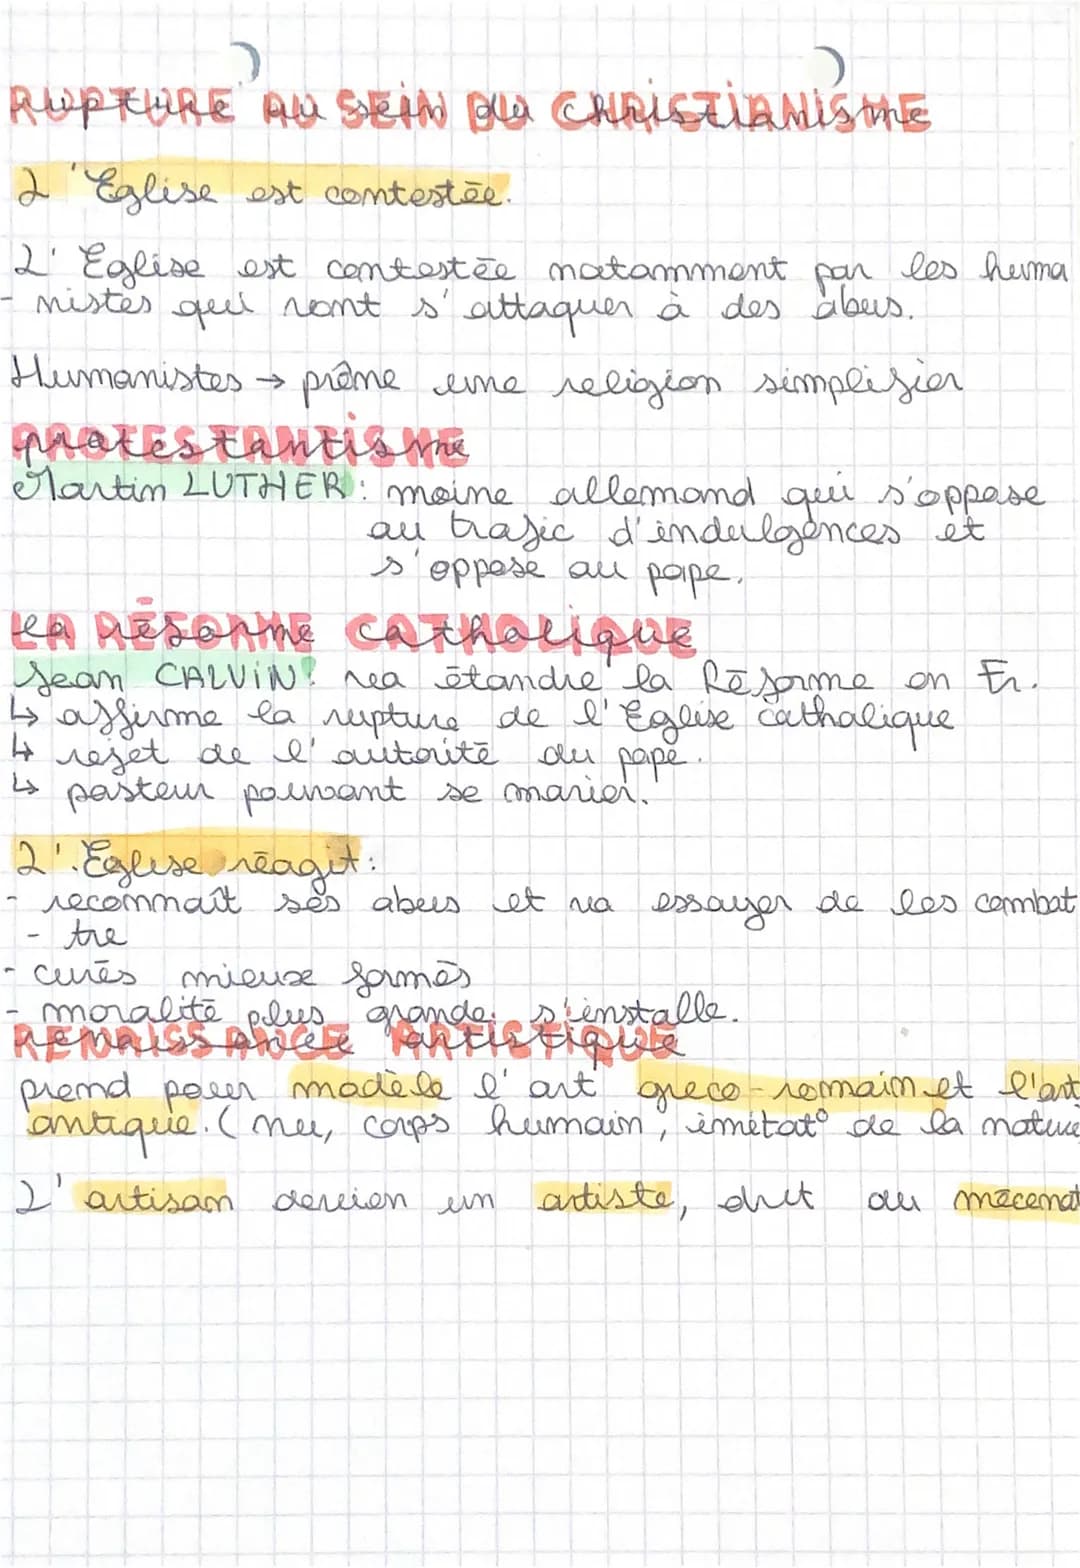 RUPTURE AU SEIN DU CHRISTIANISME
L'Eglise est contestée.
L'Eglise est contestée notamment par les huma
- nistes qui vont s'attaquer à des abus.
Humanistes → prône une religion simplifier
PROTESTANTISME
Martin LUTHER : moine allemand qui s'oppose
au trafic d'indulgences et
s'oppose au pape.
LA RÉFORME CATHOLIQUE
Jean CALVIN: va étandre la Réforme en Fr.
↳ affirme la rupture de l'Eglise catholique
↳ rejet de l'autorité du pape.
↳ pasteur pouvant se marier.
L'Eglise réagit :
- reconnaît ses abus et va essayer de les combat
- tre
- curés mieux formés
- moralité plus grande s'installe.
RENAISSANCE ARTISTIQUE
prend pour modèle l'art greco-romain et l'art
antique. (nu, corps humain, imitat° de la nature
L'artisan devien un artiste, duit au mécénat